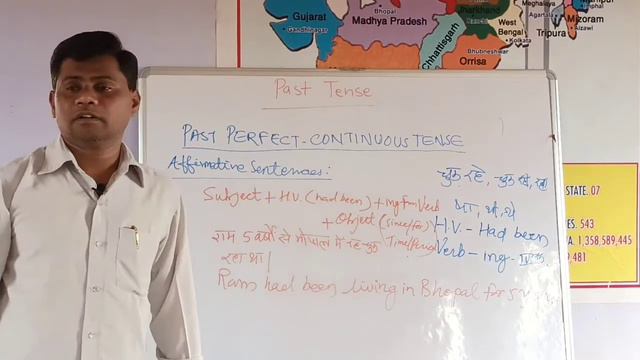 Gujarat
Gandhinagar
Bhopal
Madhya Pradesh
Chhattisgarh
Jharkhand
Ranchi
West
Bengal
Kolkata
Bhubneshwar
Orrisa
Meghalaya
Agartala
Tripura
Manipur
Mizoram
Aizawl
Past Tense
PAST PERFECT-CONTINUOUS TENSE
Affirmative Sentences:
Subject + H.V. (had been) + ing form Verb
+ Object (since/for)
Time/Period
था, थी, थे
H.V. - Had been
Verb - ing -
राम 5 वर्षों से भोपाल में रह
रहा था।
Ram had been living in Bhopal for 5
STATE. 07
ES. 543
A. 1,358,589,445
9,481